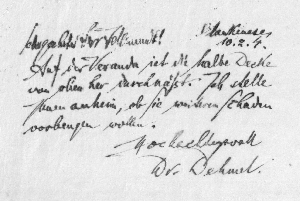 Blankenese
10.2.4.
Sehr geehrter Herr
Auf der Veranda ist die halbe Decke
von oben her durchnäßt. Ich stelle
Ihnen anheim, ob sie weiteren Schaden
vorbeugen wollen.
Hochachtungsvoll
Dr. Dehmel.